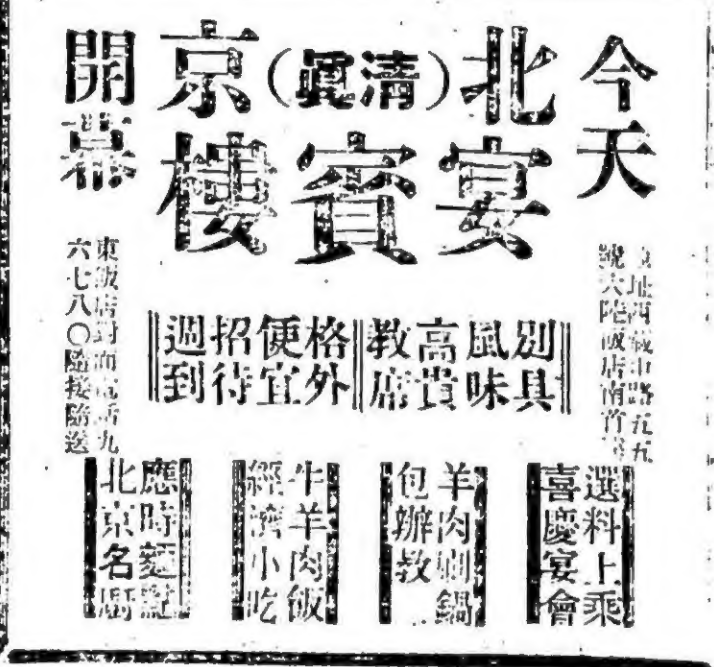 今天
北（清眞）京
宴賓樓
開幕
址西藏中路五五
號大陸飯店南首
東飯店對面電話九
六七八〇隨接隨送
別具風味高貴教席
格外便宜招待週到
選料上乘
喜慶宴會
羊肉涮鍋
包辦教
牛羊肉飯
經濟小吃
應時麵點
北京名厨